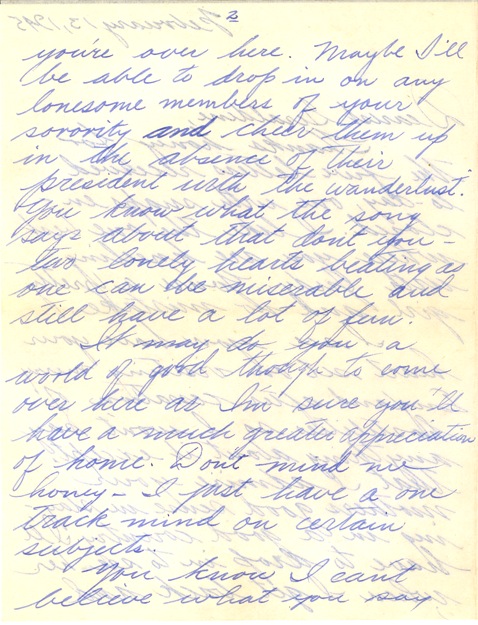 2
you're over here. Maybe I'll
be able to drop in on any
lonesome members of your
sorority and cheer them up
in the absence of their
president with the "wanderlust."
You know what the song
says about that don't you –
two lonely hearts beating as
one can be miserable and
still have a lot of fun.
It may do you a
world of good though to come
over here as I'm sure you'll
have a much greater appreciation
of home. Don't mind me
honey – I just have a one
track mind on certain
subjects.
You know I can't
believe what you say